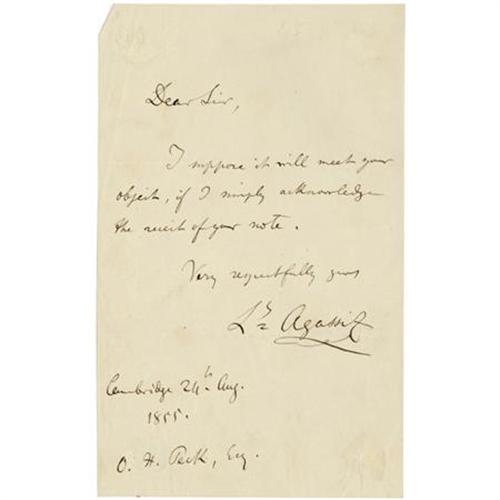 Dear Sir,
I suppose it will meet your
object, if I simply acknowledge
the receit of your note.
Very respectfully yours
Ls Agassiz
Cambridge 24th Aug.
1855.
O. H. Peck, Esq.